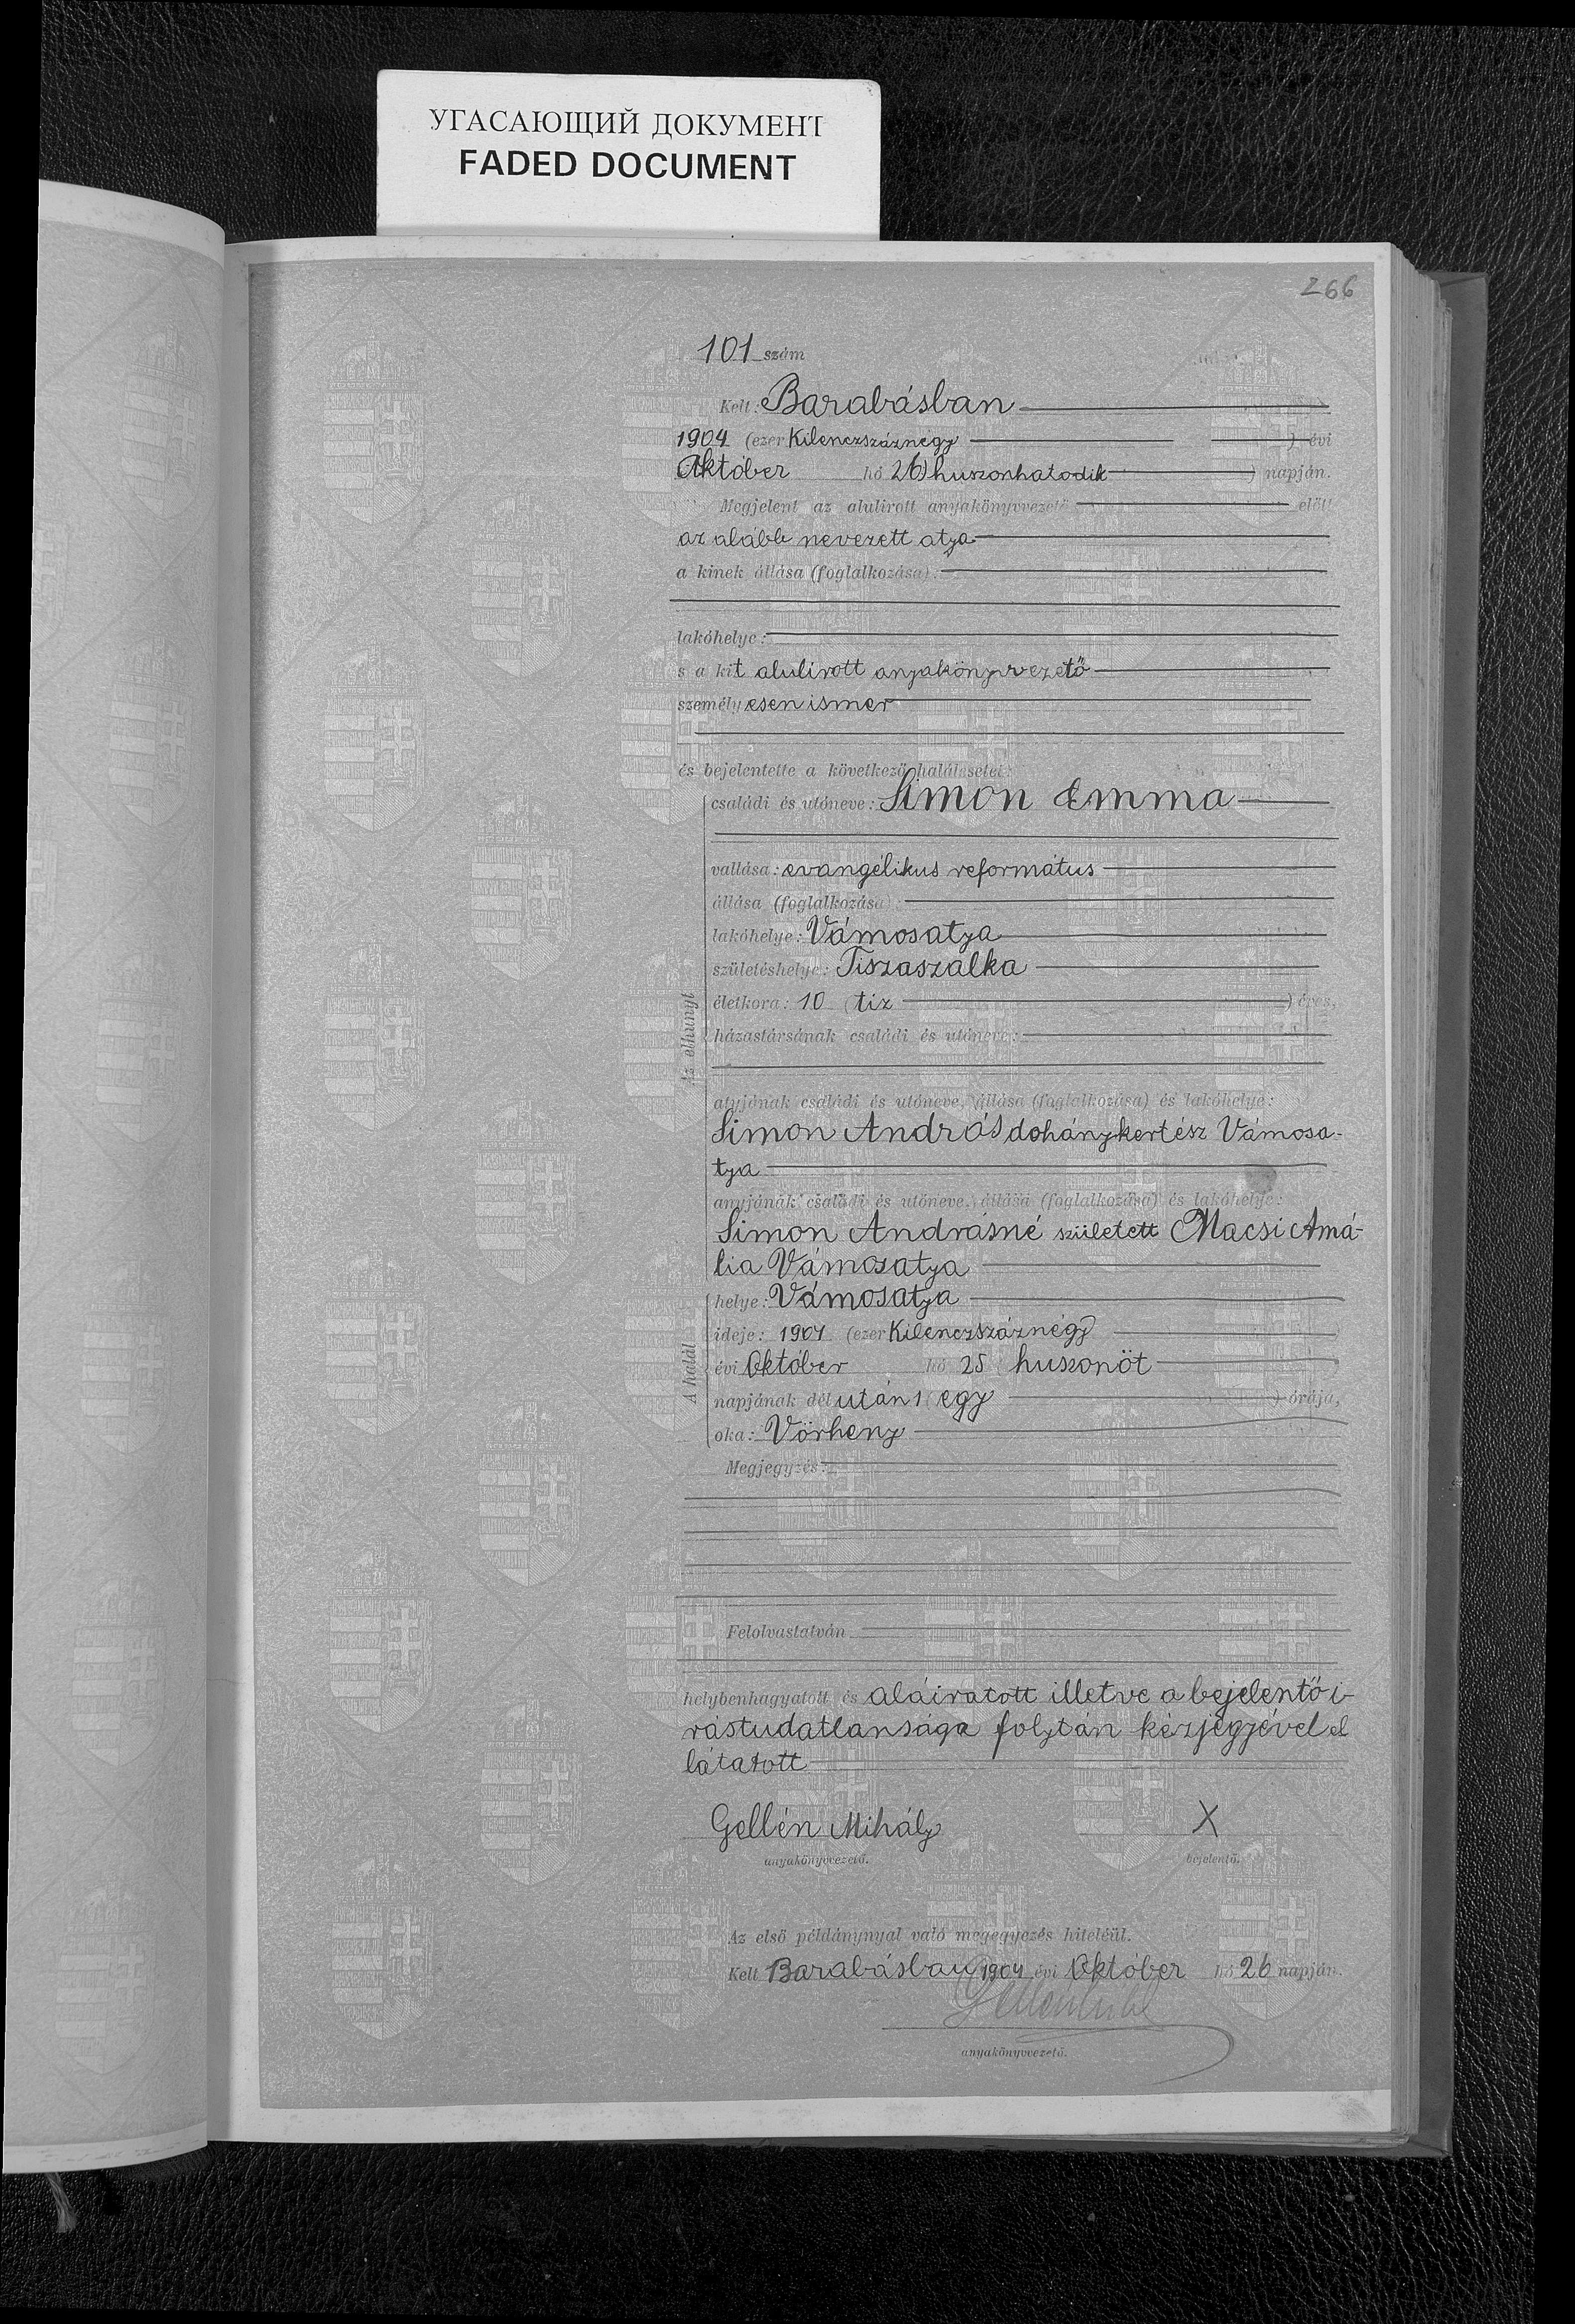 УГАСАЮЩИЙ ДОКУМЕНТ
FADED DOCUMENT
266
101 szám
Kelt: Barabásban
1904 (ezer Kilenczszáznégy ) évi
Október hó 26) huszonhatodik ) napján.
Megjelent az alulirott anyakönyvvezető előtt
az alább nevezett atya
a kinek állása (foglalkozása):
lakóhelye:
s a kit alulirott anyakönyvvezető
személyesen ismer
és bejelentette a következő halálesetet:
Az elhunyt
családi és utóneve: Simon Emma
vallása: evangélikus református
állása (foglalkozása):
lakóhelye: Vámosatya
születéshelye: Tiszaszalka
életkora: 10 (tiz ) éves,
házastársának családi és utóneve:
atyjának családi és utóneve, állása (foglalkozása) és lakóhelye:
Simon András dohánykertész Vámosa-
tya
anyjának családi és utóneve, állása (foglalkozása) és lakóhelye:
Simon Andrásné született Macsi Amá-
lia Vámosatya
A halál
helye: Vámosatya
ideje: 1904 (ezer Kilenczszáznégy)
évi Október hó 25 ( huszonöt
napjának délután 1 ( egy ) órája,
oka: Vörheny
Megjegyzés:
Felolvastatván
helybenhagyatott és aláiratott illetve a bejelentő i-
rástudatlansága folytán kézjegyével el
látatott
Gellén Mihály X
anyakönyvvezető. bejelentő.
Az első példánynyal való megegyezés hiteléül.
Kelt Barabásban 1904 évi Október hó 26 napján.
anyakönyvvezető.